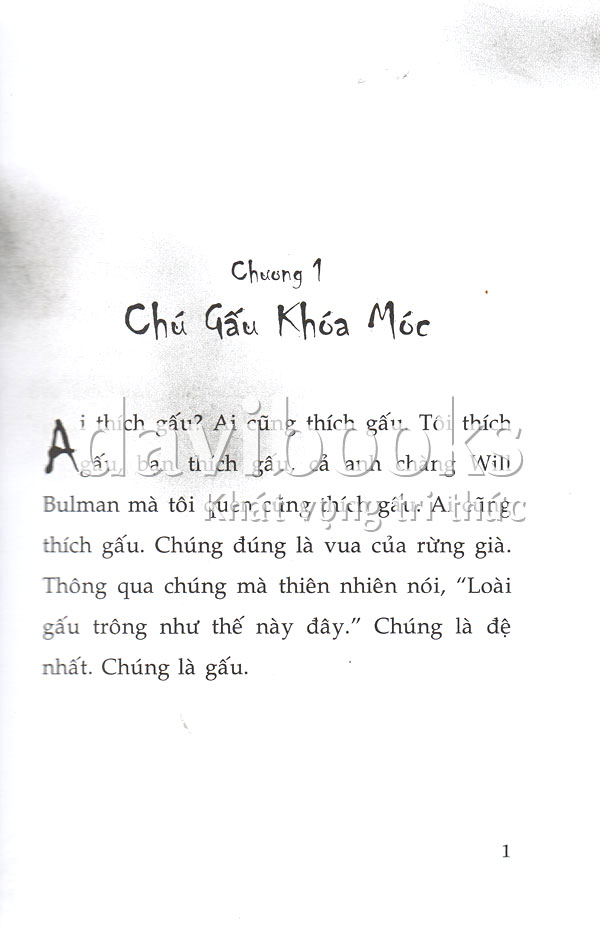 Chương 1
Chú Gấu Khóa Móc
Ai thích gấu? Ai cũng thích gấu. Tôi thích
gấu, bạn thích gấu, cả anh chàng Will
Bulman mà tôi quen cũng thích gấu. Ai cũng
thích gấu. Chúng đúng là vua của rừng già.
Thông qua chúng mà thiên nhiên nói, “Loài
gấu trông như thế này đây.” Chúng là đệ
nhất. Chúng là gấu.
davibooks
Khát vọng tri thức
1